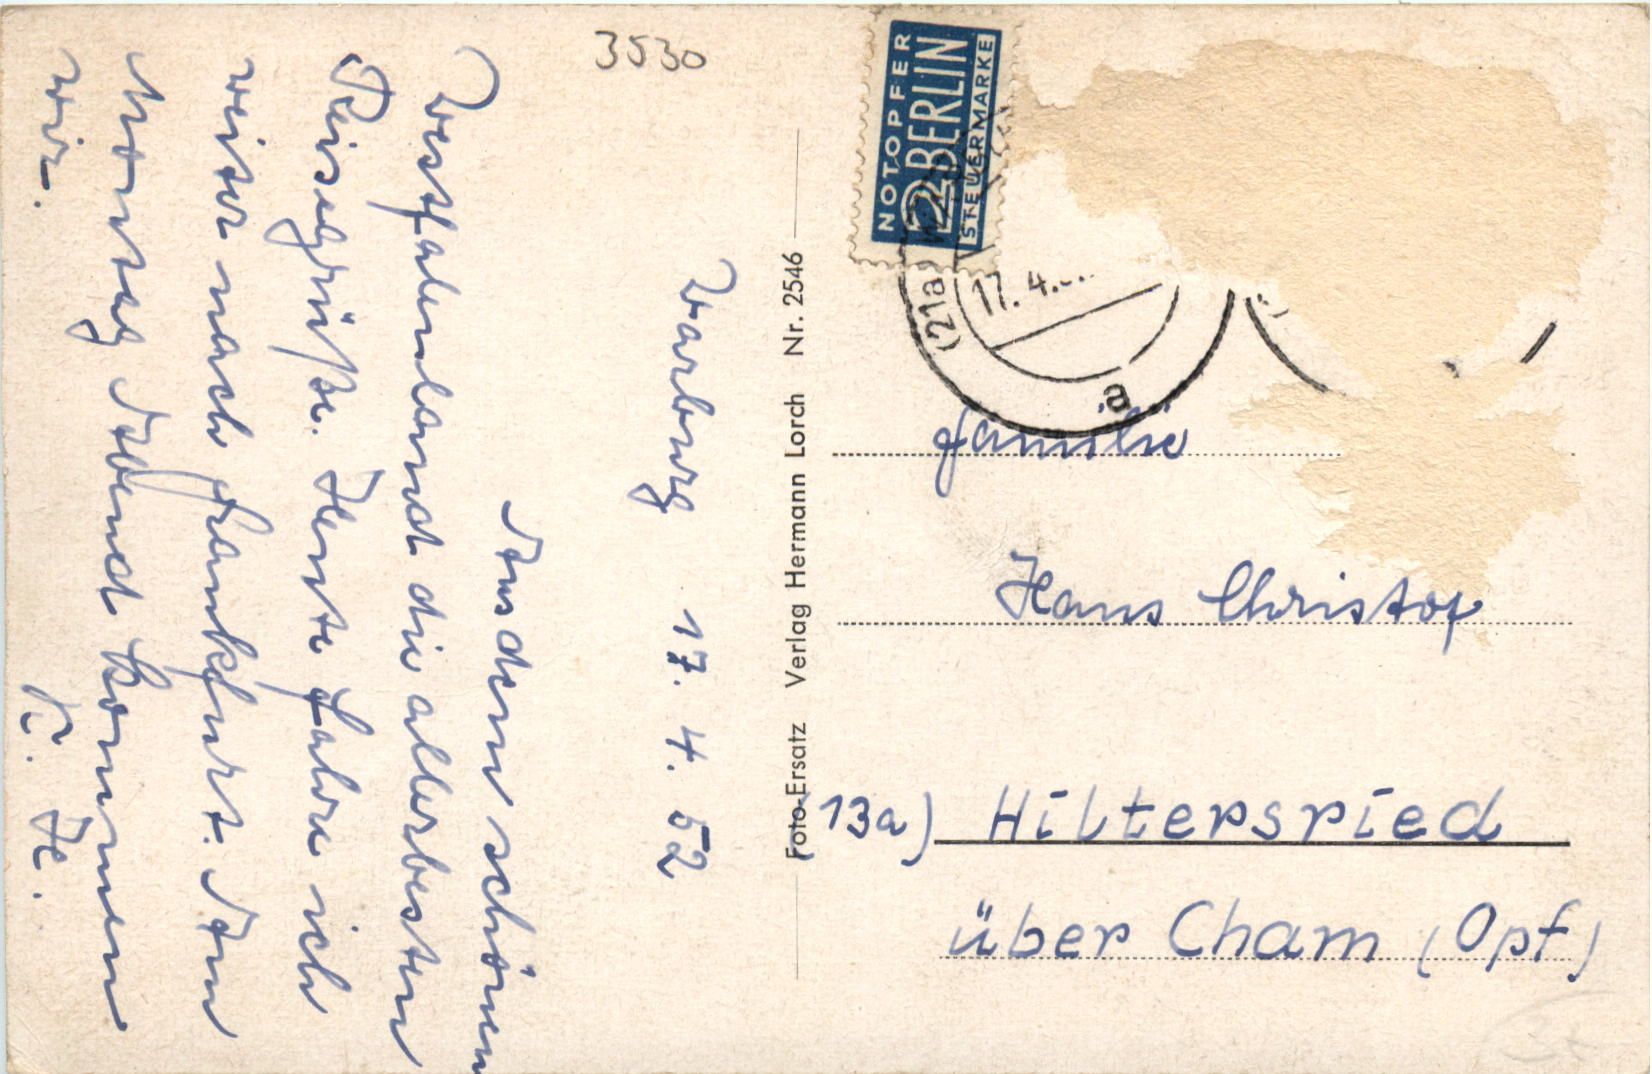 3530
Warburg 17. 4. 52
Aus dem schönen
Westfalenland die allerbesten
Reisegrüße. Heute fahre ich
weiter nach Frankfurt. Am
Montag Abend kommen
wir.
K. H.
Foto-Ersatz Verlag Hermann Lorch Nr. 2546
NOTOPFER
2 BERLIN
STEUERMARKE
(21a
17. 4.
a
Familie
Hans Christof
(13a) Hiltersried
über Cham (Opf)